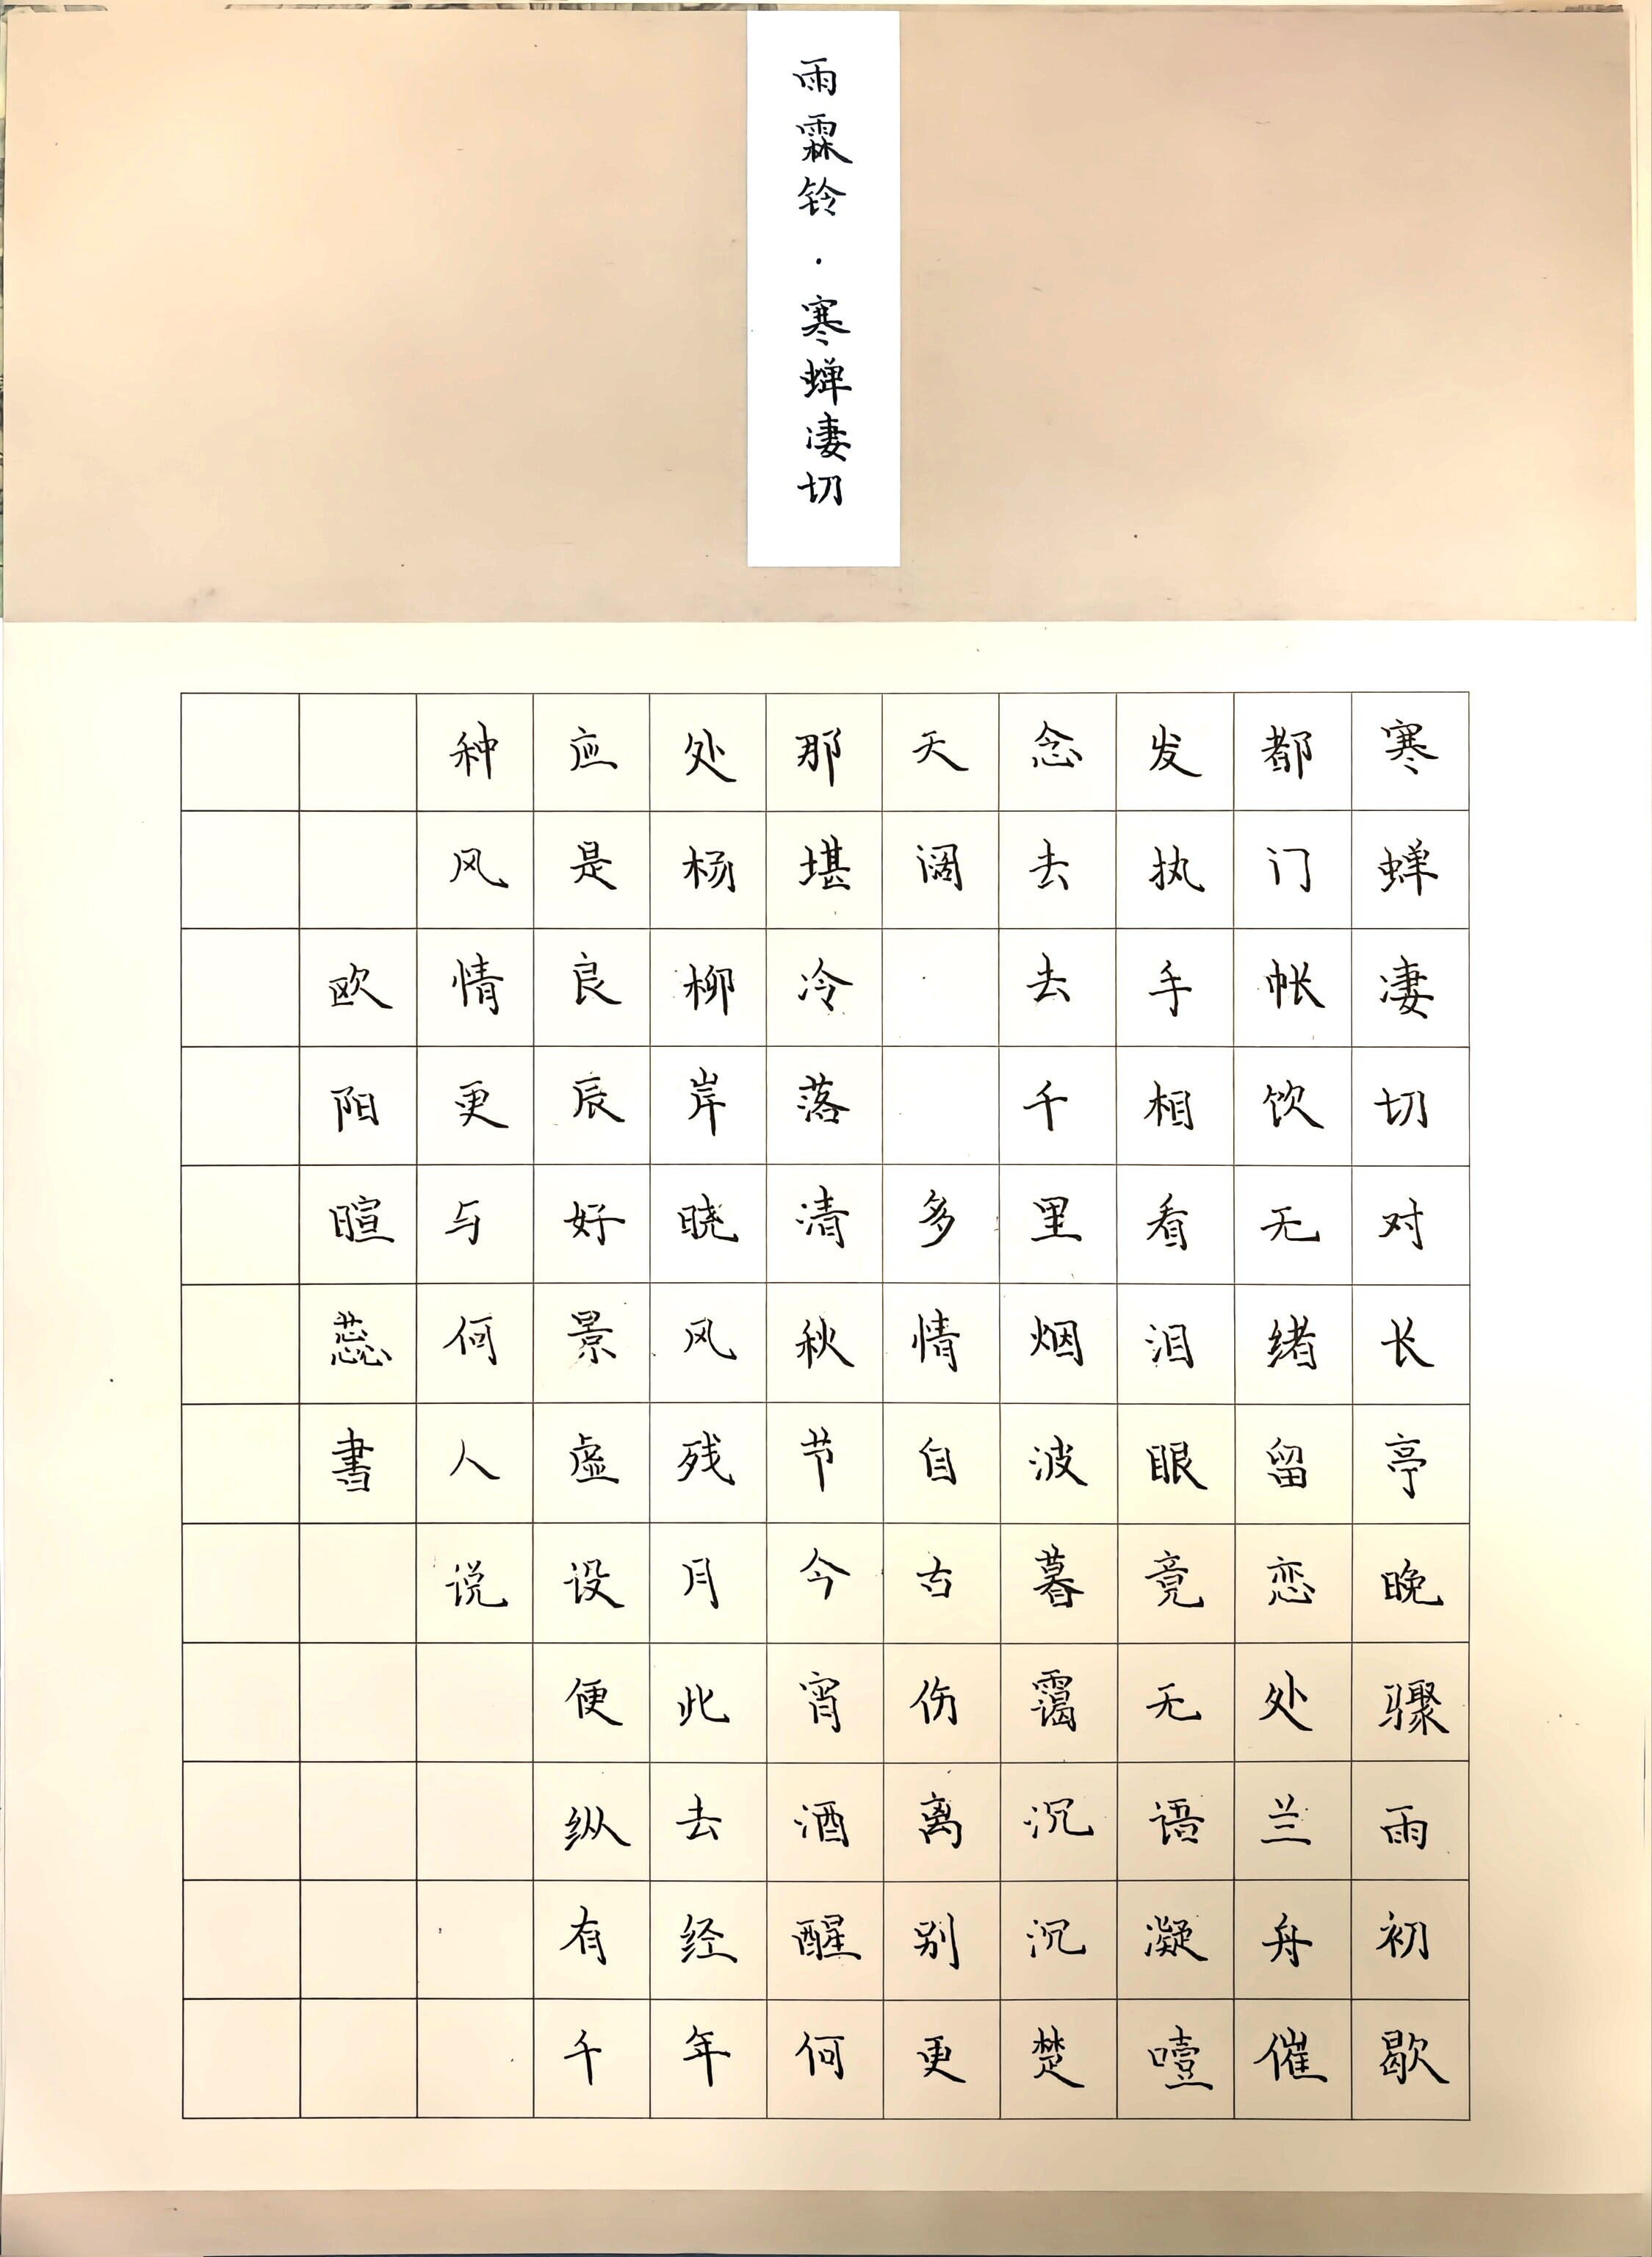 雨霖铃·寒蝉凄切
寒蝉凄切对长亭晚骤雨初歇
都门帐饮无绪留恋处兰舟催
发执手相看泪眼竟无语凝噎
念去去千里烟波暮霭沉沉楚
天阔多情自古伤离别更
那堪冷落清秋节今宵酒醒何
处杨柳岸晓风残月此去经年
应是良辰好景虚设便纵有千
种风情更与何人说
欧阳暄蕊書